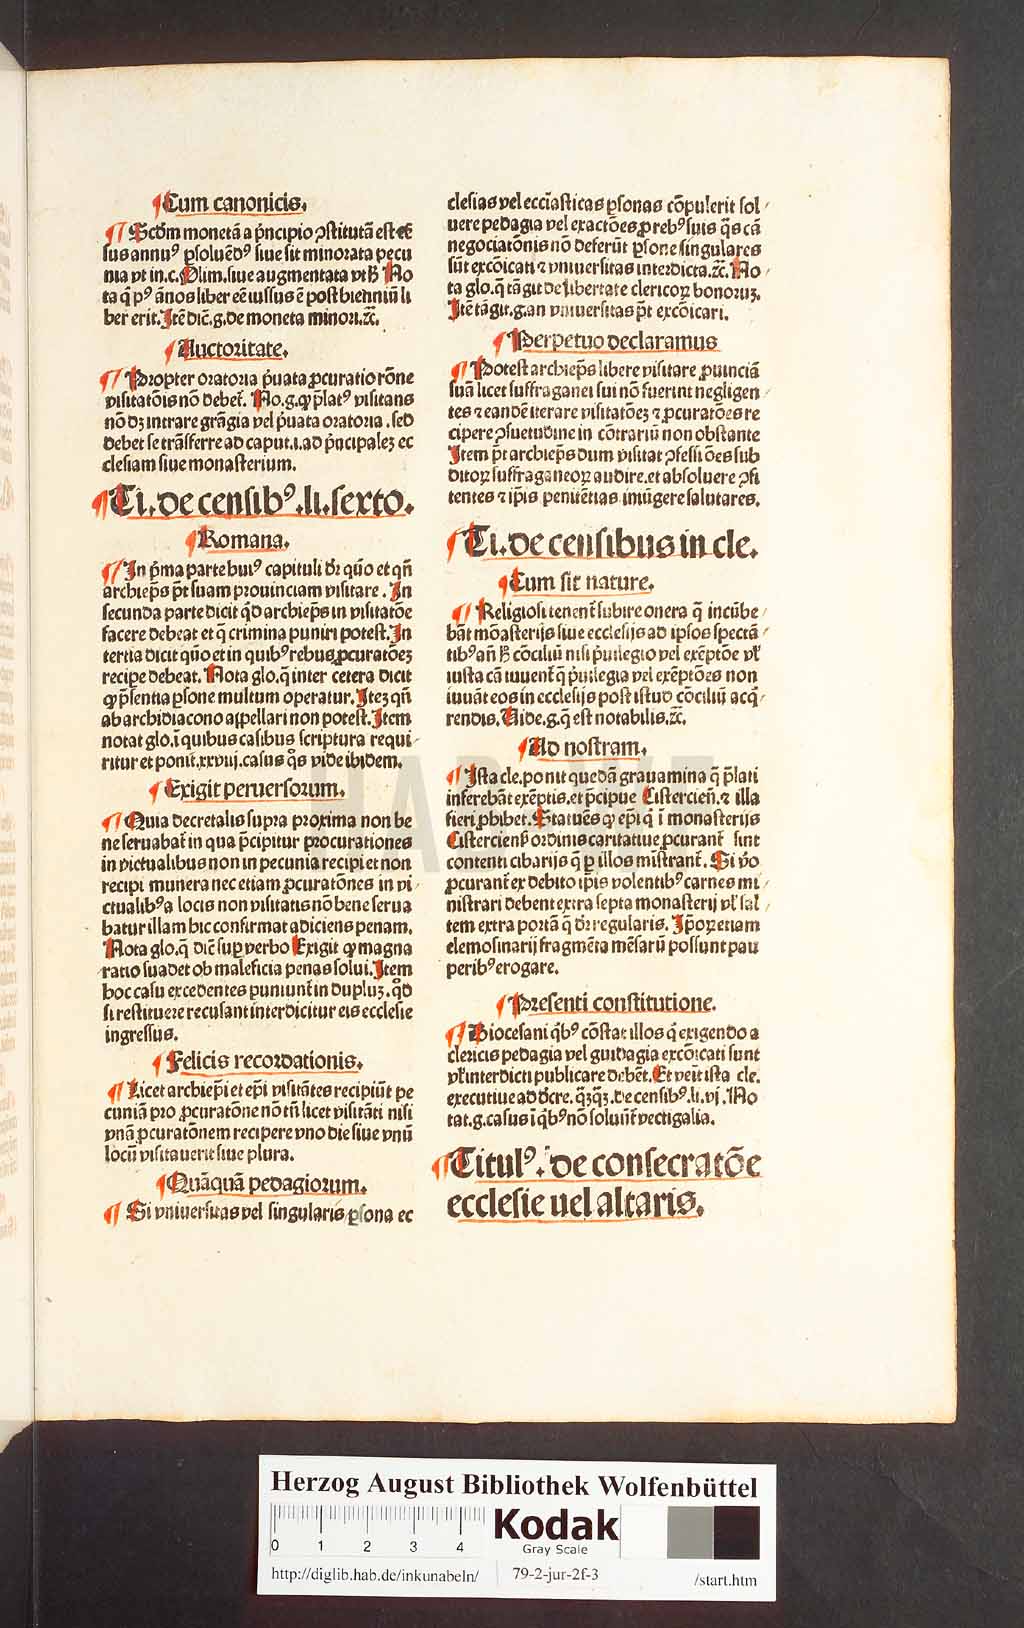 ¶ Cum canonicis.
¶ Scd̄m monetā a pͥncipio ꝯstitutā est cē
sus annuꝰ ꝑsoluēdꝰ siue sit minorata pecu
nia vt in.c. Olim. siue augmentata vt hͦ No
ta ꝙ pꝰ ānos liber eē iussus ē post bienniū li
ber erit. Itē dic̄.g. de moneta minori.⁊c̄.
¶ Auctoritate.
¶ Propter oratoria pͥuata ꝓcuratio rōne
visitatōis nō debet̄. No.g. ꝙ p̄latꝰ visitans
nō dꝫ intrare grāgia vel pͥuata oratoria. sed
debet se trāsferre ad caput.i. ad pͥncipaleꝫ ec
clesiam siue monasterium.
¶ Ti. de censibꝰ .li. sexto.
¶ Romana.
¶ In pͥma parte huiꝰ capituli dr̄ qn̄o et qn̄
archiep̄s pt̄ suam prouinciam visitare. In
secunda parte dicit qd̓ archiep̄s in visitatōe
facere debeat et q̄ crimina puniri potest. In
tertia dicit qūo et in quibꝰ rebus ꝓcuratōeꝫ
recipe debeat. Nota glo. q̄ inter cetera dicit
ꝙ p̄sentia ꝑsone multum operatur. Iteꝫ qn̄
ab archidiacono appellari non potest. Item
notat glo. ī quibus casibus scriptura requi
ritur et ponit̄.xxviij. casus qͦs vide ibidem.
¶ Exigit peruersorum.
¶ Quia decretalis supra proxima non be
ne seruabat̄ in qua p̄cipitur procurationes
in victualibus non in pecunia recipi et non
recipi munera nec etiam ꝓcuratōnes in vi
ctualibꝰ a locis non visitatis nō bene serua
batur illam hic confirmat adiciens penam.
Nota glo. q̄ dic̄ suꝑ verbo Exigit ꝙ magna
ratio suadet ob maleficia penas solui. Item
hoc casu excedentes puniunt̄ in dupluꝫ. qd̓
si restituere recusant interdicitur eis ecclesie
ingressus.
¶ Felicis recordationis.
¶ Licet archiep̄i et ep̄i visitātes recipiūt pe
cuniā pro ꝓcuratōne nō tn̄ licet visitāti nisi
vnā ꝓcuratōnem recipere vno die siue vnū
locū visitauerit siue plura.
¶ Quāquā pedagiorum.
¶ Si vniuersitas vel singularis ꝑsona ec
clesias vel ecciāsticas ꝑsonas cōpulerit sol
uere pedagia vel exactōes ꝓ rebꝰ suis qͣs cā
negociatōnis nō deferūt ꝑsone singulares
sūt excōicati ⁊ vniuersitas interdicta.⁊c̄. No
ta glo. q̄ tāgit de libertate clericoꝝ bonoruꝫ.
Itē tāgit.g. an vniuersitas pt̄ excōicari.
¶ Perpetuo declaramus
¶ Potest archiep̄s libere visitare ꝓuinciā
suā licet suffraganei sui nō fuerint negligen
tes ⁊ eandē iterare visitatōeꝫ ⁊ ꝓcuratōes re
cipere ꝯsuetudine in cōtrariū non obstante
Item pt̄ archiep̄s dum visitat ꝯfessiōes sub
ditoꝝ suffraganeoꝝ audire. et absoluere ꝯfi
tentes ⁊ ip̄is penitētias iniūgere salutares.
¶ Ti. de censibus in cle.
¶ Cum sit nature.
¶ Religiosi tenent̄ subire onera q̄ incūbe
bāt mōasterijs siue ecclesijs ad ipsos spectā
tibꝰ an̄ hͦ cōciliū nisi pͥuilegio vel exēptōe vl̓
iusta cā iuuent̄ q̄ pͥuilegia vel exēptōes non
iuuāt eos in ecclesijs post istud cōciliū acq̄
rendis. Vide.g. q̄ est notabilis.⁊c̄.
¶ Ad nostram.
¶ Ista cle. ponit quedā grauamina q̄ p̄lati
inferebāt exēptis. et p̄cipue Cistercien̄. ⁊ illa
fieri ꝓhibet. Statuēs ꝙ ep̄i q̄ ī monasterijs
Cistercien̄ ordinis caritatiue ꝓcurant̄ sint
contenti cibarijs q̄ ꝑ illos mīstrant̄. Si v̓o
ꝓcurant̄ ex debito ip̄is volentibꝰ carnes mi
nistrari debent extra septa monasterij vl̓ sal̓
tem extra portā q̄ dr̄ regularis. Ip̄oꝝ etiam
elemosinarij fragmēta mēsarū possunt pau
peribꝰ erogare.
¶ Presenti constitutione.
¶ Diocesani qͥbꝰ cōstat illos q̄ exigendo a
clericis pedagia vel guidagia excōicati sunt
vl̓ interdicti publicare debēt. Et venit ista cle.
executiue ad dcre. qͣꝫqͣꝫ. de censibꝰ.li.vj. No
tat.g. casus ī qͥbꝰ nō soluūt̄ vectigalia.
¶ Titulꝰ. de consecratōe
ecclesie uel altaris.
HAB WF
Herzog August Bibliothek Wolfenbüttel
0 1 2 3 4
Kodak
Gray Scale
http://diglib.hab.de/inkunabeln/
79-2-jur-2f-3
/start.htm